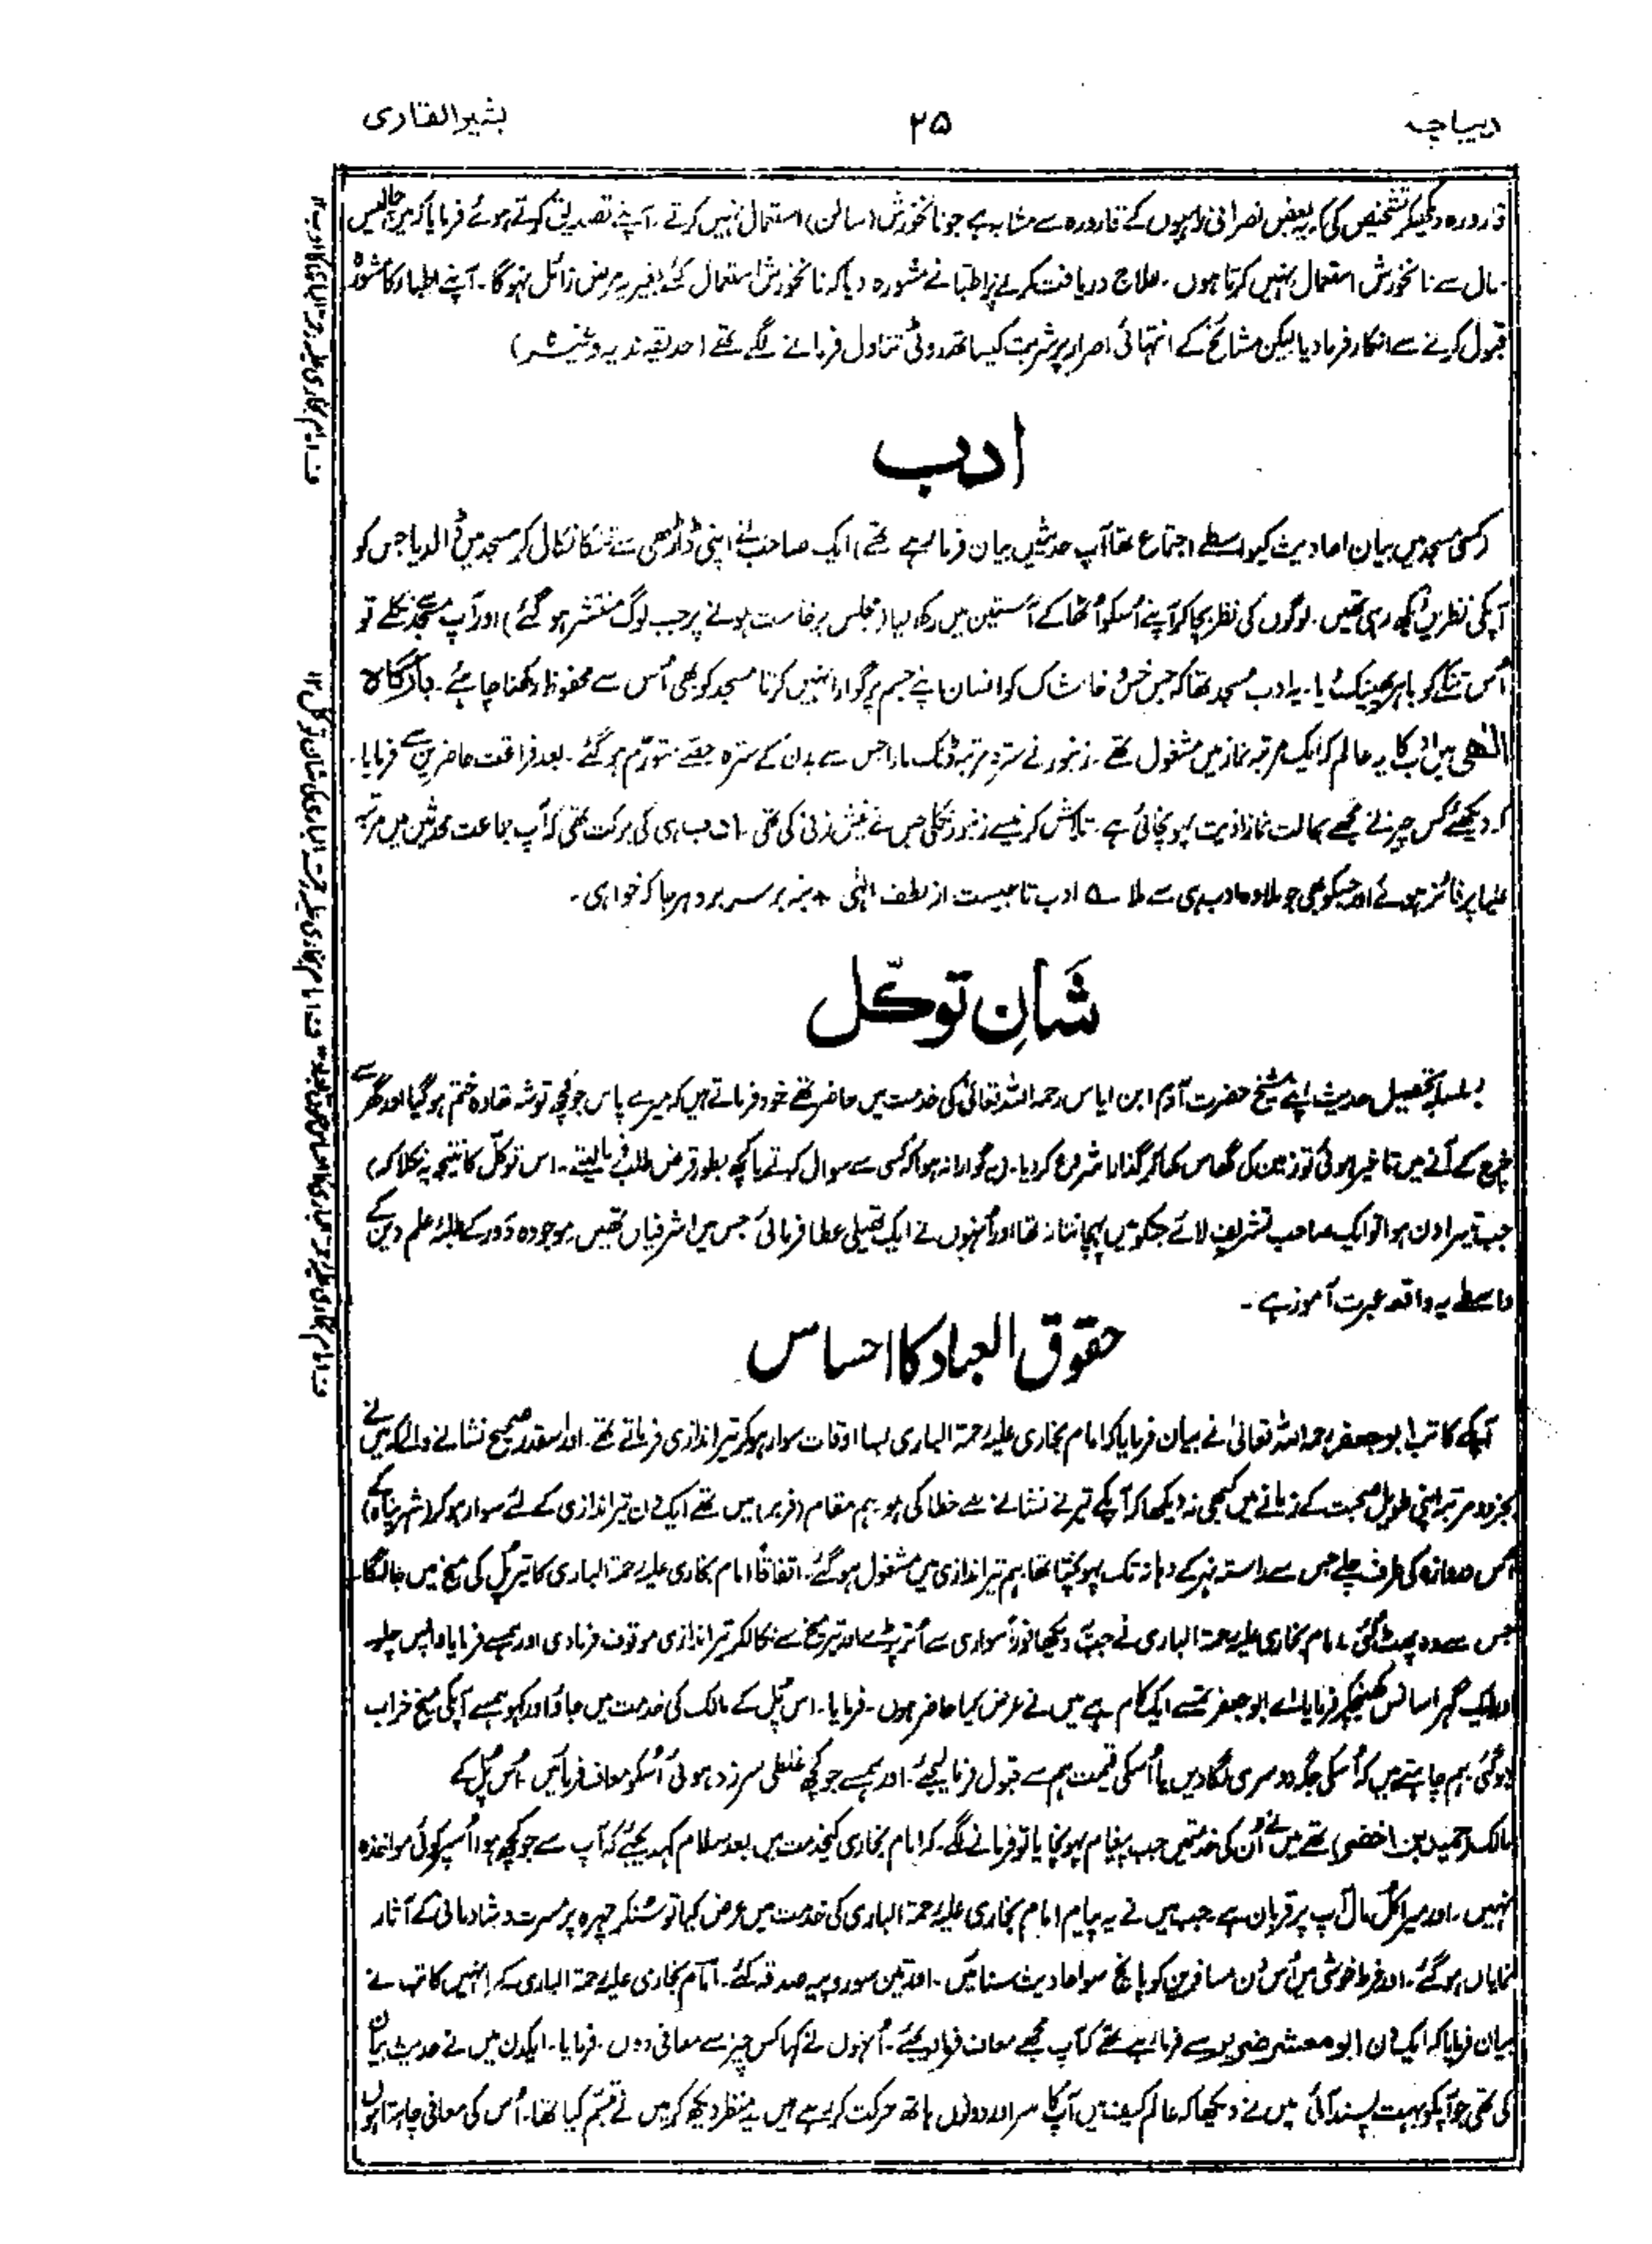 دیباچہ
۲۵
بشیرالقاری
قارورہ دیکھکر تشخیص کی کہ یہ بعض نصرانی راہبوں کے قارورہ سے مشابہ ہے جو نانخورش (سالن) استعمال نہیں کرتے۔ آپنے تصدیق کرتے ہوئے فرمایا کہ میں چالیس
سال سے نانخورش استعمال نہیں کرتا ہوں۔ علاج دریافت کرنے پر اطبا نے مشورہ دیا کہ نانخورش استعمال کئے بغیر یہ مرض زائل نہوگا۔ آپنے اطباء کا مشورہ
قبول کرنے سے انکار فرمادیا لیکن مشائخ کے انتہائی اصرار پر شربت کیساتھ روٹی تناول فرمانے لگے تھے (حدیقہ ندیہ وغیرہ)
ادب
کسی مسجد میں بیان احادیث کیواسطے اجتماع تھا آپ حدیثیں بیان فرما رہے تھے، ایک صاحب نے اپنی ڈاڑھی سے تنکا نکال کر مسجد میں ڈالدیا جس کو
آپکی نظریں دیکھ رہی تھیں۔ لوگوں کی نظر بچا کر آپنے اُسکو اُٹھا کے آستین میں رکھ لیا (مجلس برخاست ہونے پر جب لوگ منتشر ہوگئے) اور آپ مسجد سے نکلے تو
اُس تنکے کو باہر پھینک دیا۔ یہ ادب مسجد تھا کہ جس خس و خاشاک کو انسان اپنے جسم پر گوارا نہیں کرتا مسجد کو بھی اُس سے محفوظ رکھنا چاہئے۔ بارگاہ
الٰھی میں ادب کا یہ عالم کہ ایک مرتبہ نماز میں مشغول تھے۔ زنبور نے سترہ مرتبہ ڈنک مارا جس سے بدن کے سترہ حصے متورم ہوگئے۔ بعد فراغت حاضرین سے فرمایا۔
کہ دیکھئے کس چیز نے مجھے بحالت نماز اذیت پہونچائی ہے۔ تلاش کرنیسے زنبور نکلی جس نے نیش زنی کی تھی۔ ادب ہی کی برکت تھی کہ آپ جماعت محدثین میں مرتبہ
علیا پر فائز ہوئے اور جسکو بھی جو ملا وہ ادب ہی سے ملا ؎ ادب تاجیست از لطف الٰہی + بنہ بر سر برو ہر جا کہ خواہی۔
شَانِ توکّل
بسلسلہ تحصیل حدیث اپنے شیخ حضرت آدم ابن ایاس رحمہ اللہ تعالیٰ کی خدمت میں حاضر تھے خود فرماتے ہیں کہ میرے پاس جو کچھ توشہ تھا وہ ختم ہوگیا اور گھر سے
خرچ کے آنے میں تاخیر ہوئی تو زمین کی گھاس کھا کر گذارا شروع کردیا۔ (یہ گوارا نہ ہوا کہ کسی سے سوال کرتے یا کچھ بطور قرض طلب فرمالیتے۔ اس توکّل کا نتیجہ یہ نکلا کہ)
جب تیسرا دن ہوا تو ایک صاحب تشریف لائے جنکو میں پہچانتا نہ تھا اور اُنہوں نے ایک تھیلی عطا فرمائی جس میں اشرفیاں تھیں۔ موجودہ دَور کے طلبۂ علم دین کے
واسطے یہ واقعہ عبرت آموز ہے۔
حقوق العباد کا احساس
آپکے کاتب ابوجعفر رحمہ اللہ تعالیٰ نے بیان فرمایا کہ امام بخاری علیہ رحمۃ الباری بسا اوقات سوار ہوکر تیراندازی فرماتے تھے۔ اور اسقدر صحیح نشانے والے کہ میں نے
بجز دو مرتبہ اپنی طویل صحبت کے زمانے میں کبھی نہ دیکھا کہ آپکے تیر نے نشانے سے خطا کی ہو۔ ہم مقام (فربر) میں تھے ایکدن تیراندازی کے لئے سوار ہوکر (شہر پناہ کے)
اُس دروازہ کی طرف چلے جس سے راستہ نہر کے دہانہ تک پہونچتا تھا ہم تیراندازی میں مشغول ہوگئے۔ اتفاقاً امام بخاری علیہ رحمۃ الباری کا تیر پُل کی میخ میں جا لگا
جس سے وہ پھٹ گئی۔ امام بخاری علیہ رحمۃ الباری نے جب یہ دیکھا فوراً سواری سے اُتر پڑے اور تیر میخ سے نکالکر تیراندازی موقوف فرمادی اور ہمسے فرمایا واپس چلو۔
اور ایک گہرا سانس کھینچکر فرمایا۔ اے ابوجعفر تمسے ایک کام ہے میں نے عرض کیا حاضر ہوں۔ فرمایا۔ اس پُل کے مالک کی خدمت میں جاؤ اور کہو ہمسے آپکی میخ خراب
ہوگئی ہم چاہتے ہیں کہ اُسکی جگہ دوسری لگادیں یا اُسکی قیمت ہم سے قبول فرمالیجئے۔ اور ہمسے جو کچھ غلطی سرزد ہوئی اُسکو معاف فرمائیں۔ اُس پُل کے
مالک (حمید بن اخضر) تھے میں نے اُن کی خدمتمیں جب پیغام پہونچایا تو فرمانے لگے۔ کہ امام بخاری کیخدمت میں بعد سلام کہدیجئے کہ آپ سے جو کچھ ہوا اُسپر کوئی مواخذہ
نہیں۔ اور میرا کُل مال آپ پر قربان ہے۔ جب میں نے یہ پیام امام بخاری علیہ رحمۃ الباری کی خدمت میں عرض کیا تو سُنکر چہرہ پر مسرت و شادمانی کے آثار
نمایاں ہوگئے۔ اور فرط خوشی میں اُس دن مسافرین کو پانچ سو احادیث سنائیں۔ اور تین سو روپیہ صدقہ کئے۔ امام بخاری علیہ رحمۃ الباری کے انہیں کاتب نے
بیان فرمایا کہ ایکدن ابومعشر ضریر سے فرما رہے تھے کہ آپ مجھے معاف فرما دیجئے۔ اُنہوں نے کہا کس چیز سے معافی دوں۔ فرمایا۔ ایکدن میں نے حدیث بیان
کی تھی جو آپکو بہت پسند آئی میں نے دیکھا کہ عالم کیف میں آپکا سر اور دونوں ہاتھ حرکت کررہے ہیں یہ منظر دیکھ کر میں نے تبسّم کیا تھا۔ اُس کی معافی چاہتا ہوں
ف امام بخاری علیہ رحمۃ الباری کا ادب ۱۲
ف امام بخاری علیہ رحمۃ الباری کی شان توکل ۱۲
ف امام بخاری علیہ رحمۃ الباری کا احساس حقوق العباد ۱۲